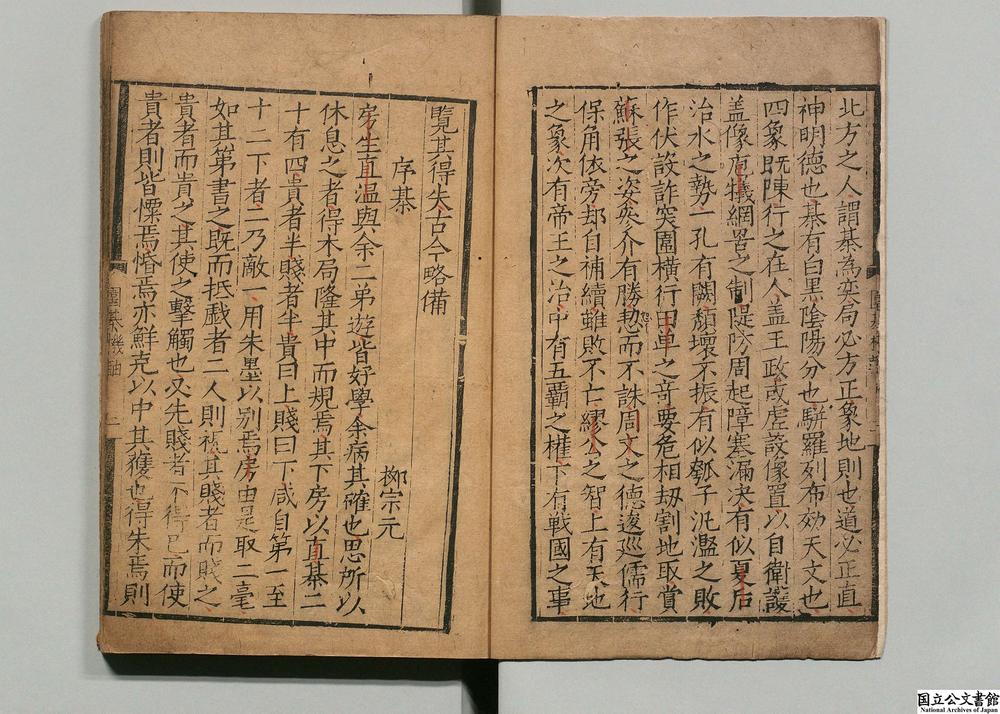 北方之人謂棊為奕局必方正象地則也道必正直
神明德也棊有白黒陰陽分也駢羅列布効天文也
四象既陳行之在人盖王政或虚設像置以自衛護
盖像庖犠網罟之制隄防周起障塞漏决有似夏后
治水之勢一孔有闕頽壞不振有似瓠子汎濫之敗
作伏設詐突圍横行田单之竒要危相刼割地取賞
蘇張之姿叅介有勝恕而不誅周文之德逡巡儒行
保角依旁却自補續雖敗不亡繆公之智上有天地
之象次有帝王之治中有五覇之權下有戦國之事
覽其得失古今略備
序棊
柳宗元
房生直温與余二弟遊皆好學余病其確也思所以
休息之者得木局隆其中而規焉其下房以直棊二
十有四貴者半賤者半貴曰上賤曰下咸自第一至
十二下者二乃敵一用朱墨以别焉房由是取二毫
如其第書之既而抵戱者二人則視其賤者而賤之
貴者而貴之其使之擊觸也又先賤者不得已而使
貴者則皆慄焉惛焉亦鮮克以中其獲也得朱焉則
圍棊機軸 二
国立公文書館
National Archives of Japan